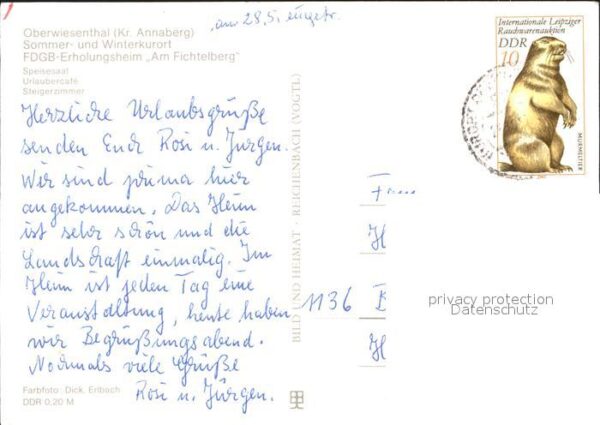 am 28.5. eingetr.
Oberwiesenthal (Kr. Annaberg)
Sommer- und Winterkurort
FDGB-Erholungsheim „Am Fichtelberg"
Speisesaal
Urlaubercafé
Steigerzimmer
Herzliche Urlaubsgrüße
senden Euch Rosi u. Jürgen.
Wir sind prima hier
angekommen. Das Heim
ist sehr schön und die
Landschaft einmalig. Im
Heim ist jeden Tag eine
Veranstaltung, heute haben
wir Begrüßungsabend.
Nochmals viele Grüße
Rosi u. Jürgen.
Farbfoto: Dick, Erlbach
DDR 0,20 M
BILD UND HEIMAT · REICHENBACH (VOGTL)
Internationale Leipziger
Rauchwarenauktion
DDR
10
MURMELTIER
Fam
H
1136 B
H
privacy protection
Datenschutz